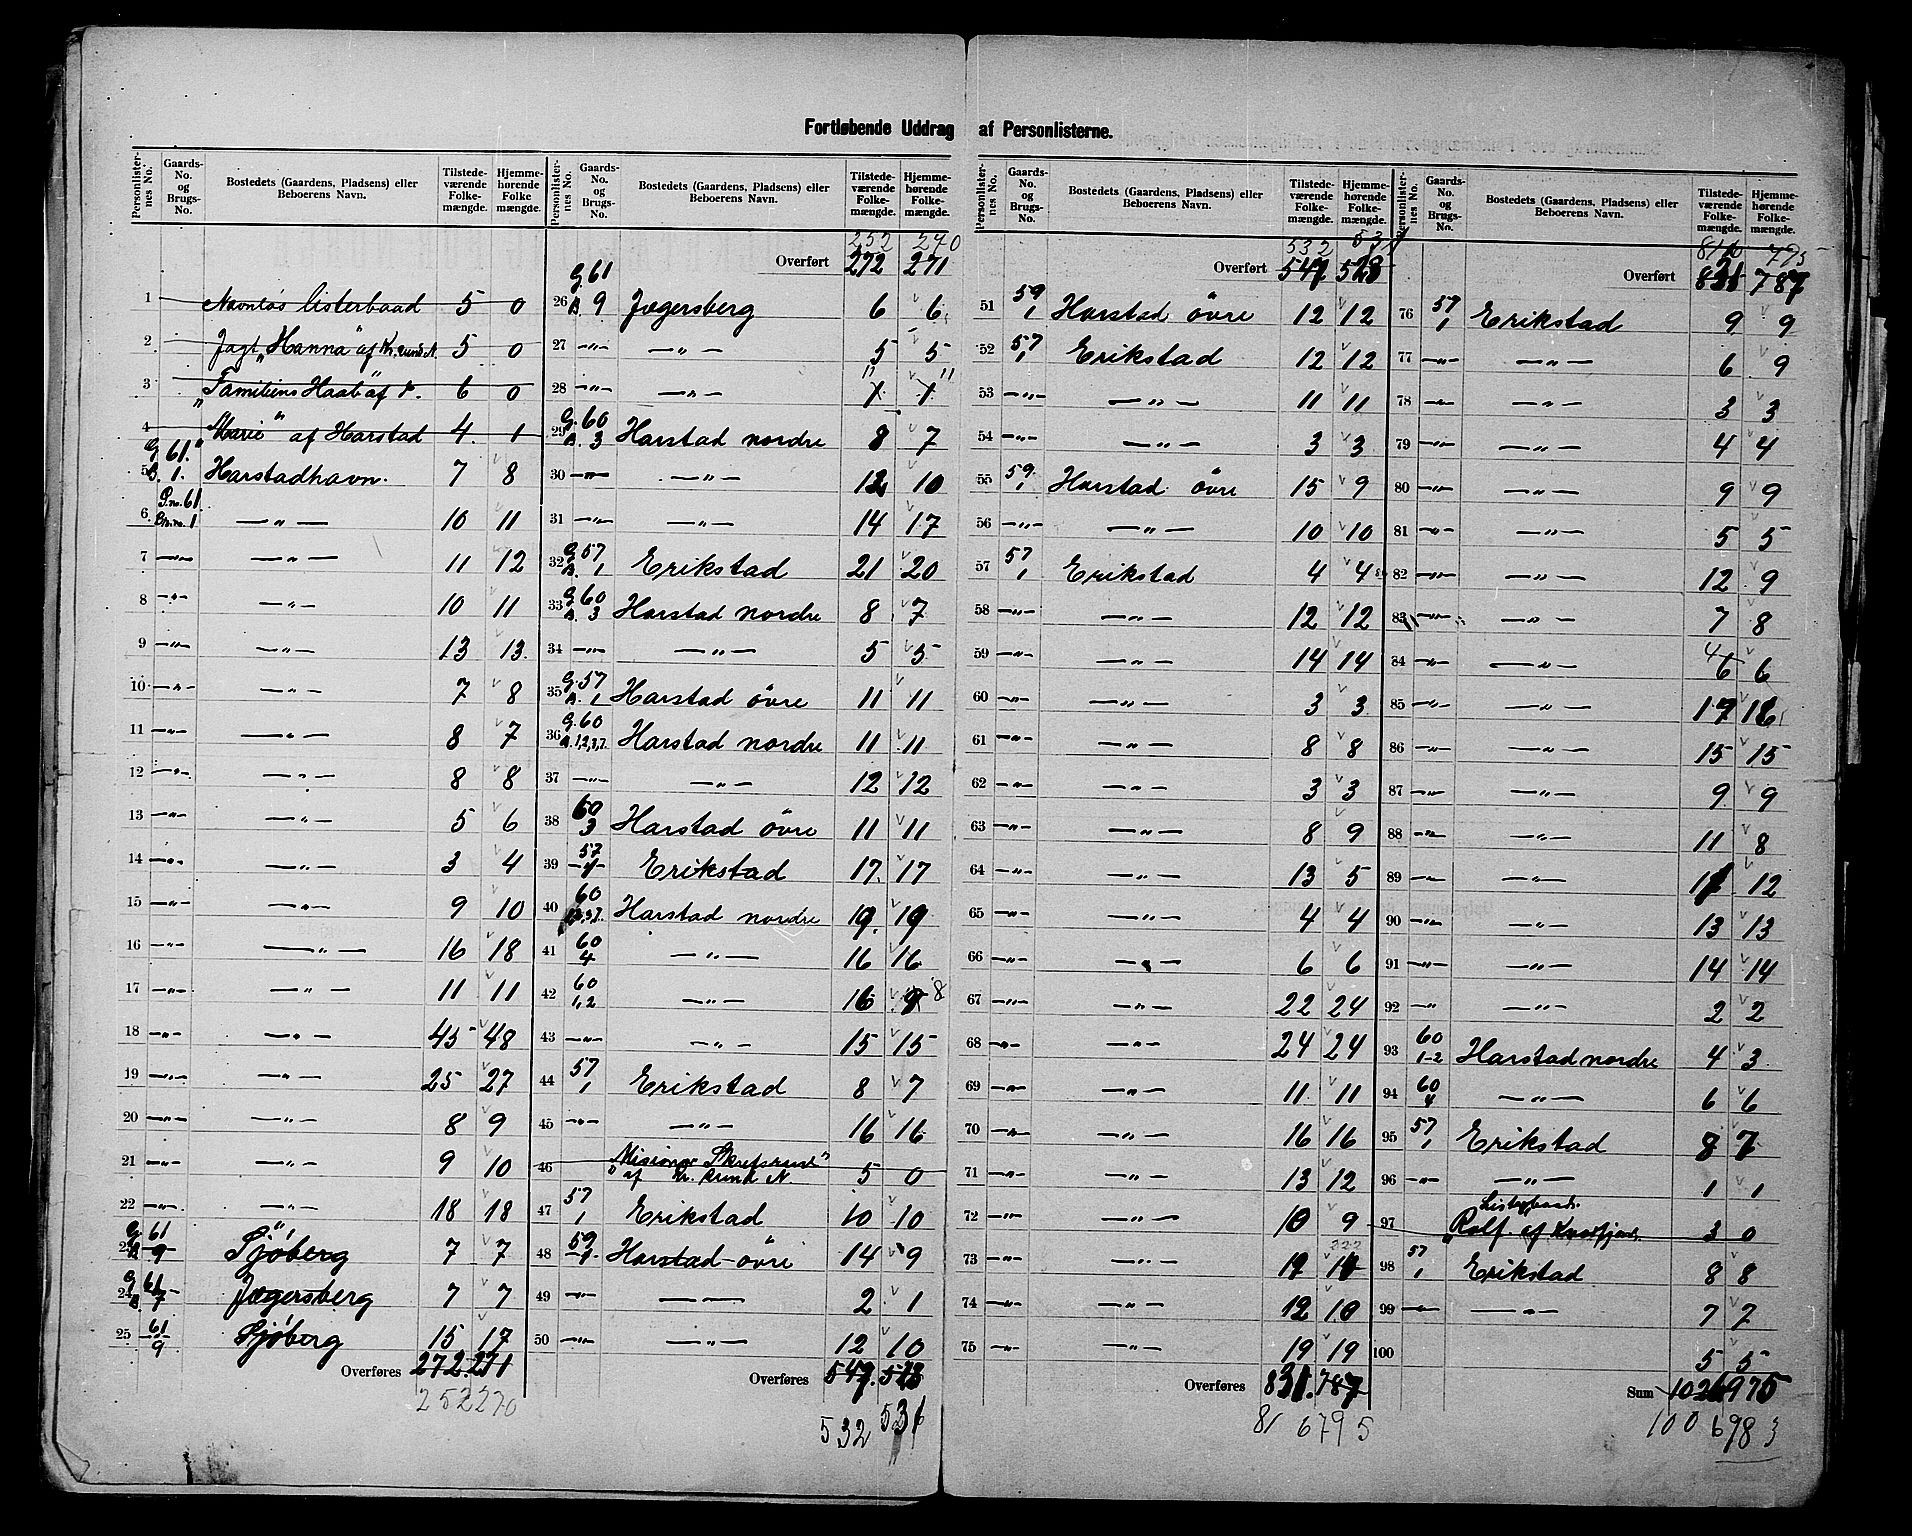 Fortløbende Uddrag af Personlisterne.
Personlisternes No. | Gaards-No. og Brugs-No. | Bostedets (Gaardens, Pladsens) eller Beboerens Navn. | Tilstedeværende Folkemængde. | Hjemmehørende Folkemængde.
1 Navnløs Listerbaad 5 0
2 Jagt „Hanna" af Kr.sund N. 5 0
3 „Familiens Haab" af 6 0
4 „Marie" af Harstad 4 1
5 G. 61. B. 1. Harstadhavn. 7 8
6 G.no. 61. Br.no. 1 —„— 10 11
7 —„— —„— 11 12
8 —„— —„— 10 11
9 —„— —„— 13 13
10 —„— —„— 7 8
11 —„— —„— 8 7
12 —„— —„— 8 8
13 —„— —„— 5 6
14 —„— —„— 3 4
15 —„— —„— 9 10
16 —„— —„— 16 18
17 —„— —„— 11 11
18 —„— —„— 45 48
19 —„— —„— 25 27
20 —„— —„— 8 9
21 —„— —„— 9 10
22 —„— —„— 18 18
23 G. 61 B. 9 Sjöberg 7 7
24 G. 61 B. 7 Jægersberg 7 7
25 61 9 Sjöberg 15 17
Overføres 272 271
252 270
Personlisternes No. | Gaards-No. og Brugs-No. | Bostedets (Gaardens, Pladsens) eller Beboerens Navn. | Tilstedeværende Folkemængde. | Hjemmehørende Folkemængde.
252 270
Overført 272 271
26 G 61 B. 9 Jægersberg 6 6
27 —„— —„— 5 5
11 11
28 —„— —„— 1 1
29 G. 60 B. 3 Harstad nordre 8 7
30 —„— —„— 12 10
31 —„— —„— 14 17
32 G. 57 B. 1 Erikstad 21 20
33 G. 60 B. 3 Harstad nordre 8 7
34 —„— —„— 5 5
35 G. 57 B. 1 Harstad övre 11 11
36 G. 60 Harstad nordre 11 11
37 —„— —„— 12 12
38 60 3 Harstad övre 11 11
39 57 1 Erikstad 17 17
40 60 Harstad nordre 19 19
41 60 4 —„— 16 16
42 60 1,2 —„— 16 9 8
43 —„— —„— 15 15
44 57 1 Erikstad 8 7
45 —„— —„— 16 16
46 „Misionær Skrefsrud" af Kr. sund N 5 0
47 57 1 Erikstad 10 10
48 59 1 Harstad övre 14 9
49 —„— —„— 2 1
50 —„— —„— 12 10
Overføres 547 528
532 531
Personlisternes No. | Gaards-No. og Brugs-No. | Bostedets (Gaardens, Pladsens) eller Beboerens Navn. | Tilstedeværende Folkemængde. | Hjemmehørende Folkemængde.
532 531
Overført 547 528
51 59 1 Harstad övre 12 12
52 57 1 Erikstad 12 12
53 —„— —„— 11 11
54 —„— —„— 3 3
55 59. 1 Harstad övre 15 9
56 —„— —„— 10 10
57 57 1 Erikstad 4 4
58 —„— —„— 12 12
59 —„— —„— 14 14
60 —„— —„— 3 3
61 —„— —„— 8 8
62 —„— —„— 3 3
63 —„— —„— 8 9
64 —„— —„— 13 5
65 —„— —„— 4 4
66 —„— —„— 6 6
67 —„— —„— 22 24
68 —„— —„— 24 24
69 —„— —„— 11 11
70 —„— —„— 16 16
71 —„— —„— 13 12
72 —„— —„— 10 9
73 —„— —„— 12 10
74 —„— —„— 12 10
75 —„— —„— 19 19
Overføres 831 787
816 795
Personlisternes No. | Gaards-No. og Brugs-No. | Bostedets (Gaardens, Pladsens) eller Beboerens Navn. | Tilstedeværende Folkemængde. | Hjemmehørende Folkemængde.
816 795
Overført 831 787
76 57 1 Erikstad 9 9
77 —„— —„— 6 9
78 —„— —„— 3 3
79 —„— —„— 4 4
80 —„— —„— 9 9
81 —„— —„— 5 5
82 —„— —„— 12 9
83 —„— —„— 7 8
84 —„— —„— 4 6 6
85 —„— —„— 17 16
86 —„— —„— 15 15
87 —„— —„— 9 9
88 —„— —„— 11 8
89 —„— —„— 11 12
90 —„— —„— 13 13
91 —„— —„— 14 14
92 —„— —„— 2 2
93 60 1-2 Harstad nordre 4 3
94 60 4 —„— 6 6
95 57 1 Erikstad 8 7
96 —„— —„— 1 1
97 Rolf af 3 0
98 57 1 Erikstad 8 8
99 —„— —„— 7 7
100 5 5
Sum 1026 975
1006 983